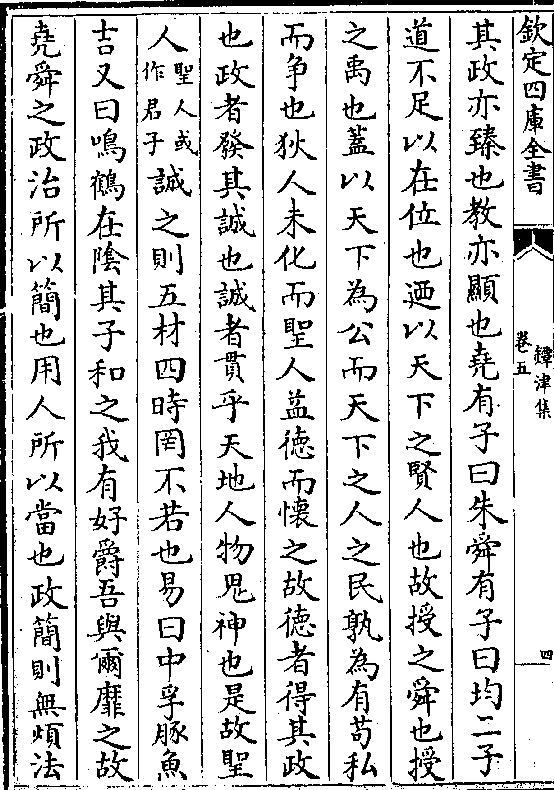 欽定四庫全書
鐔津集
卷五
四
其政亦臻也教亦顯也堯有子曰朱舜有子曰均二子
道不足以在位也迺以天下之賢人也故授之舜也授
之禹也蓋以天下為公而天下之人之民孰為有苟私
而争也狄人未化而聖人益德而懐之故德者得其政
也政者發其誠也誠者貫乎天地人物鬼神也是故聖
人聖人或作君子誠之則五材四時罔不若也易曰中孚豚魚
吉又曰鳴鶴在陰其子和之我有好爵吾與爾靡之故
堯舜之政治所以簡也用人所以當也政簡則無煩法